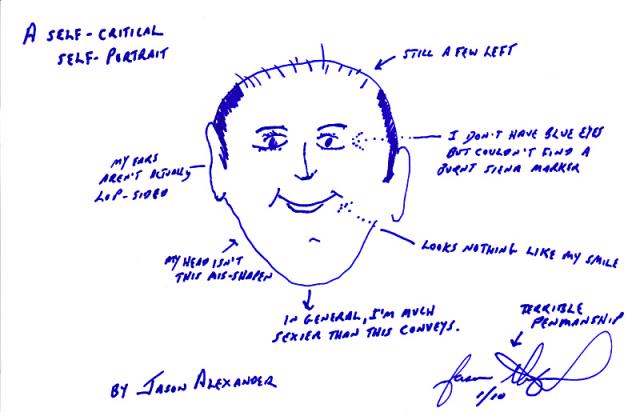 A SELF-CRITICAL
SELF-PORTRAIT
STILL A FEW LEFT
I DON'T HAVE BLUE EYES
BUT COULDN'T FIND A
BURNT SIENA MARKER
MY EARS
AREN'T ACTUALLY
LOP-SIDED
LOOKS NOTHING LIKE MY SMILE
MY HEAD ISN'T
THIS MIS-SHAPEN
IN GENERAL, I'M MUCH
SEXIER THAN THIS CONVEYS.
TERRIBLE
PENMANSHIP
BY JASON ALEXANDER
Jason
1/10